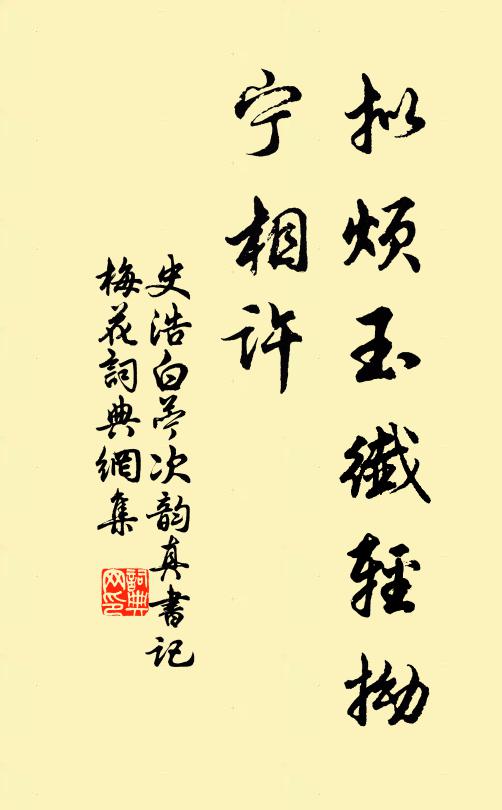 拟烦玉纖輕拗
宁相许
史浩白苎次韵真書记
梅花詞典網集
詞典网印